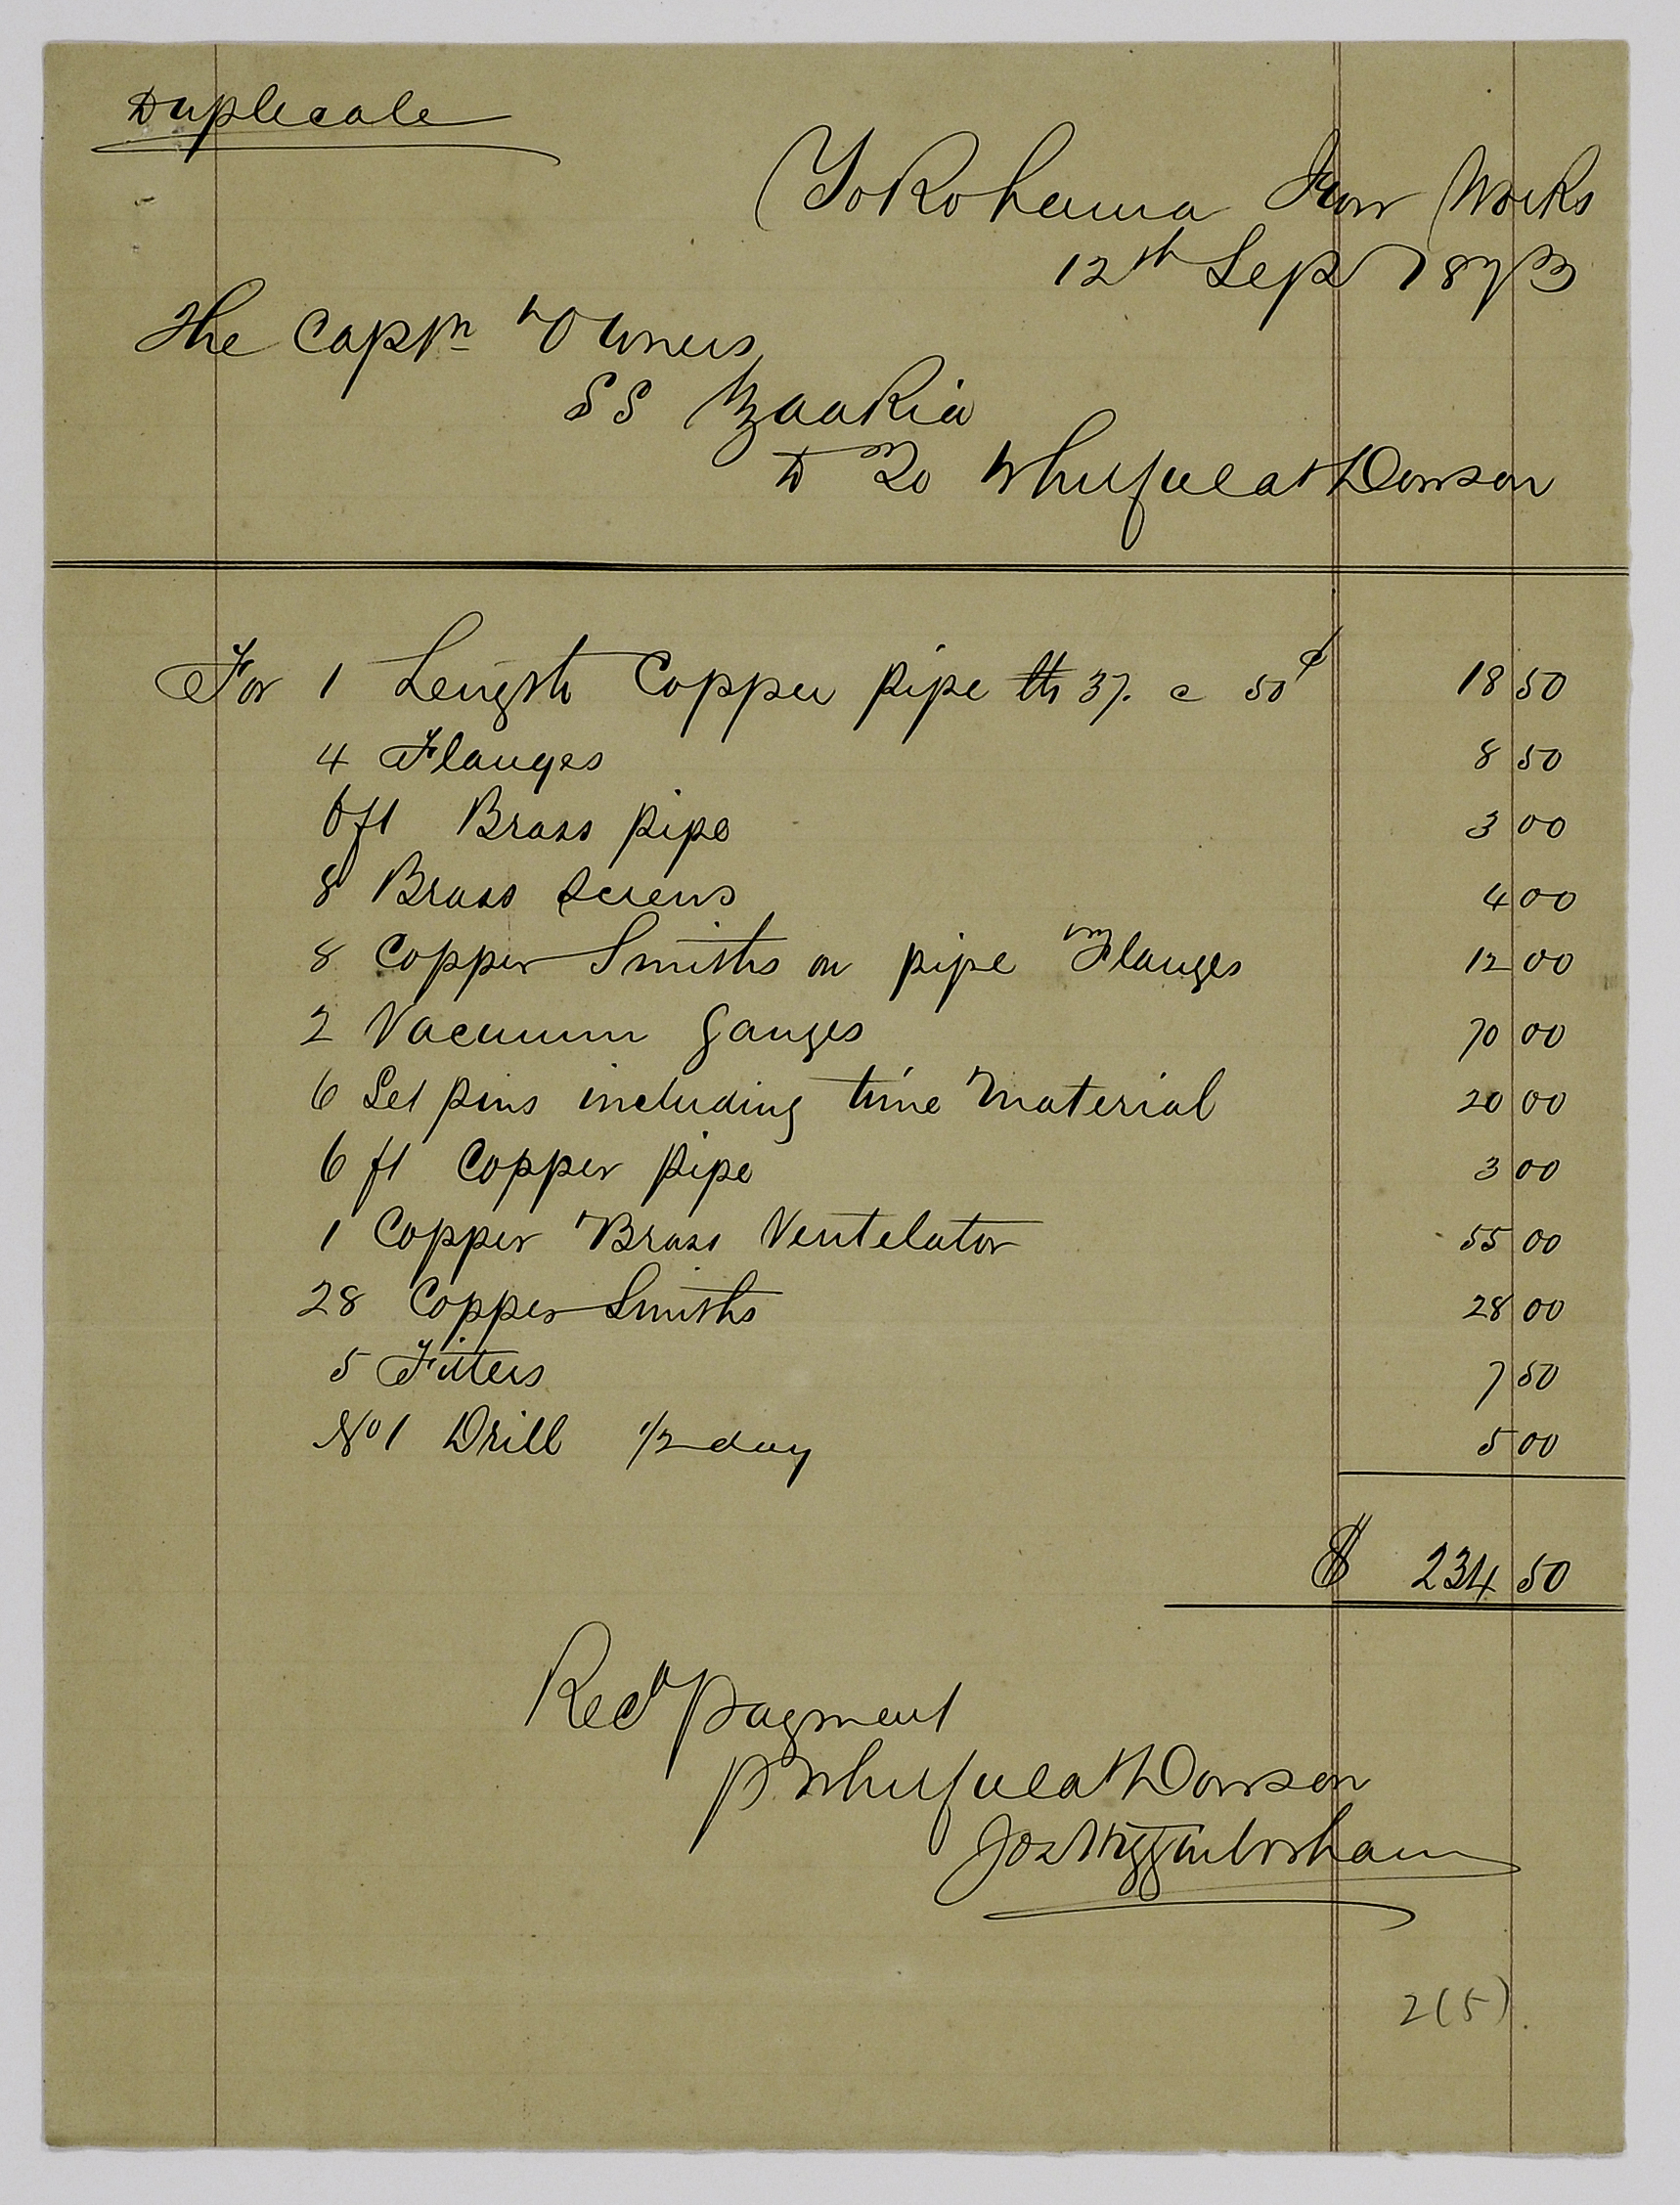 Duplicate
Yokohama Iron Works
12th Sep 1873
The Captn & Owners
SS Zaakia
Dr To Whitfield & Dowson
For 1 Length Copper pipe lbs 37. c 50¢ 18 50
4 Flanges 8 50
6 ft Brass pipe 3 00
8 Brass Screws 4 00
8 Copper Smiths on pipe & Flanges 12 00
2 Vacuum Gauges 70 00
6 Set pins including time & material 20 00
6 ft Copper pipe 3 00
1 Copper & Brass Ventelator 55 00
28 Copper Smiths 28 00
5 Fitters 7 50
No 1 Drill 1/2 day 5 00
$ 234 50
Recd payment
p Whitfield & Dowson
Jos
2(5).